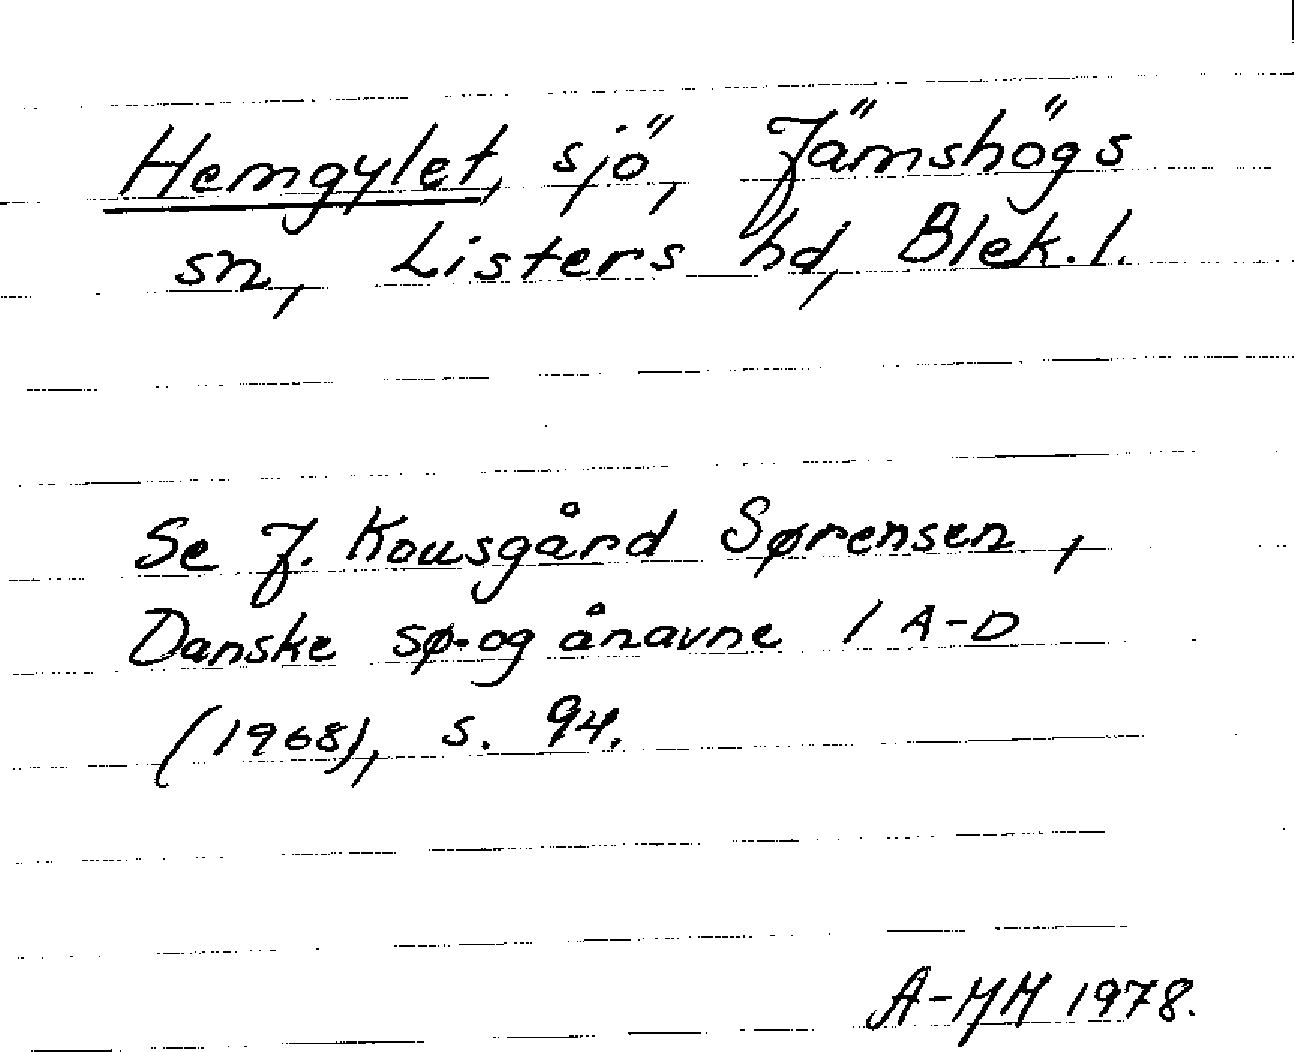 Hemgylet, sjö, Jämshögs
sn, Listers hd, Blek. l.
Se J. Kousgård Sørensen,
Danske sø- og ånavne 1 A-D
(1968), s. 94.
A-YH 1978.